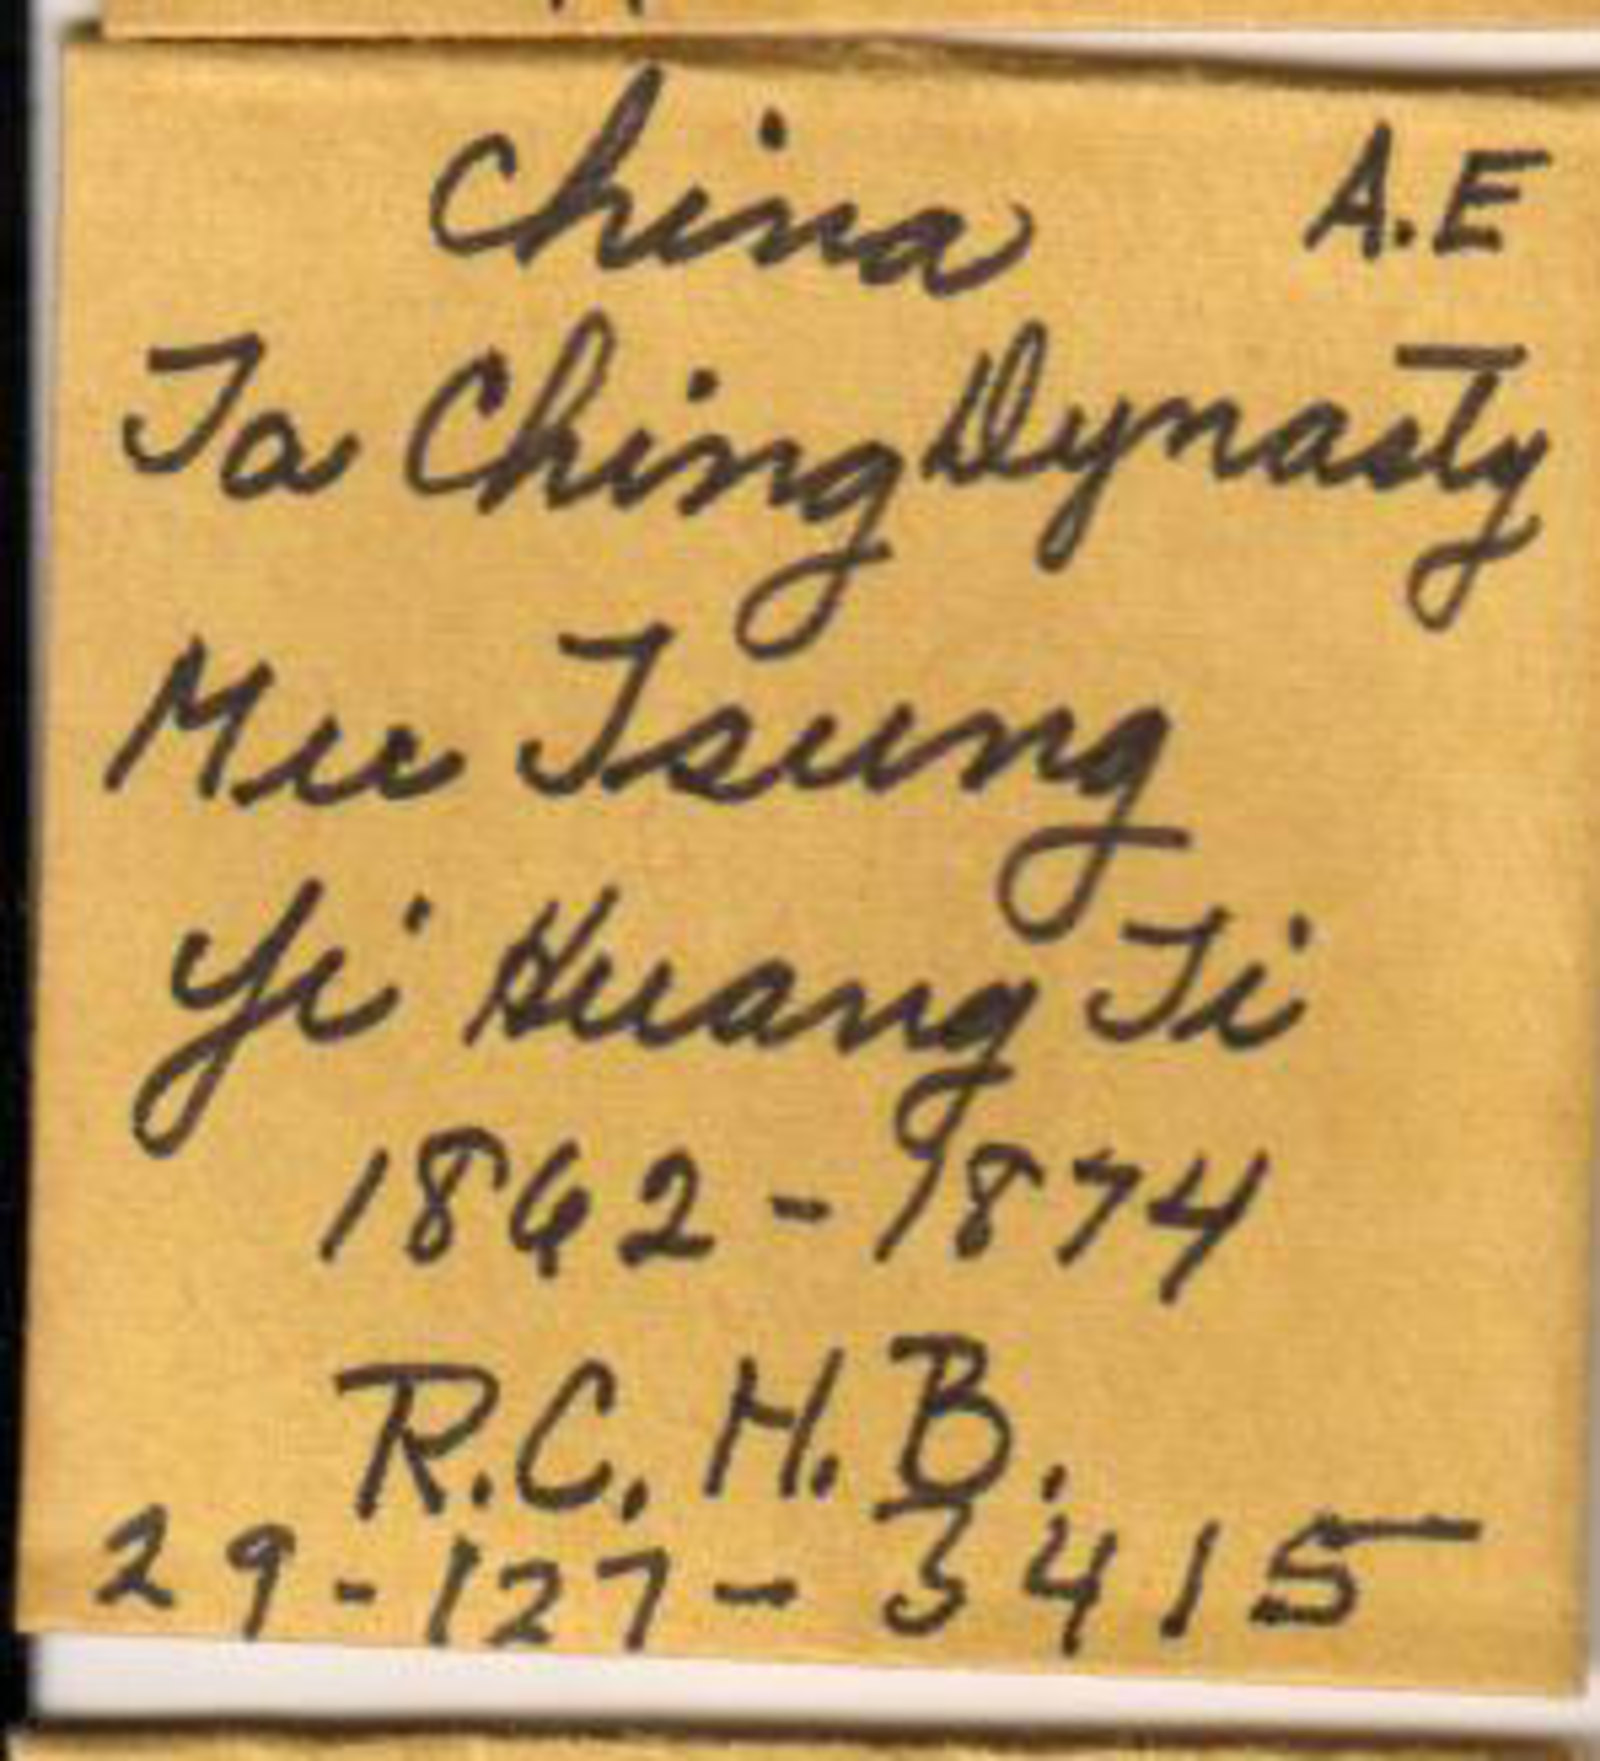 China A.E
Ta Ching Dynasty
Mu Tsung
Yi Huang Ti
1862-1874
R.C.H.B.
29-127-3415